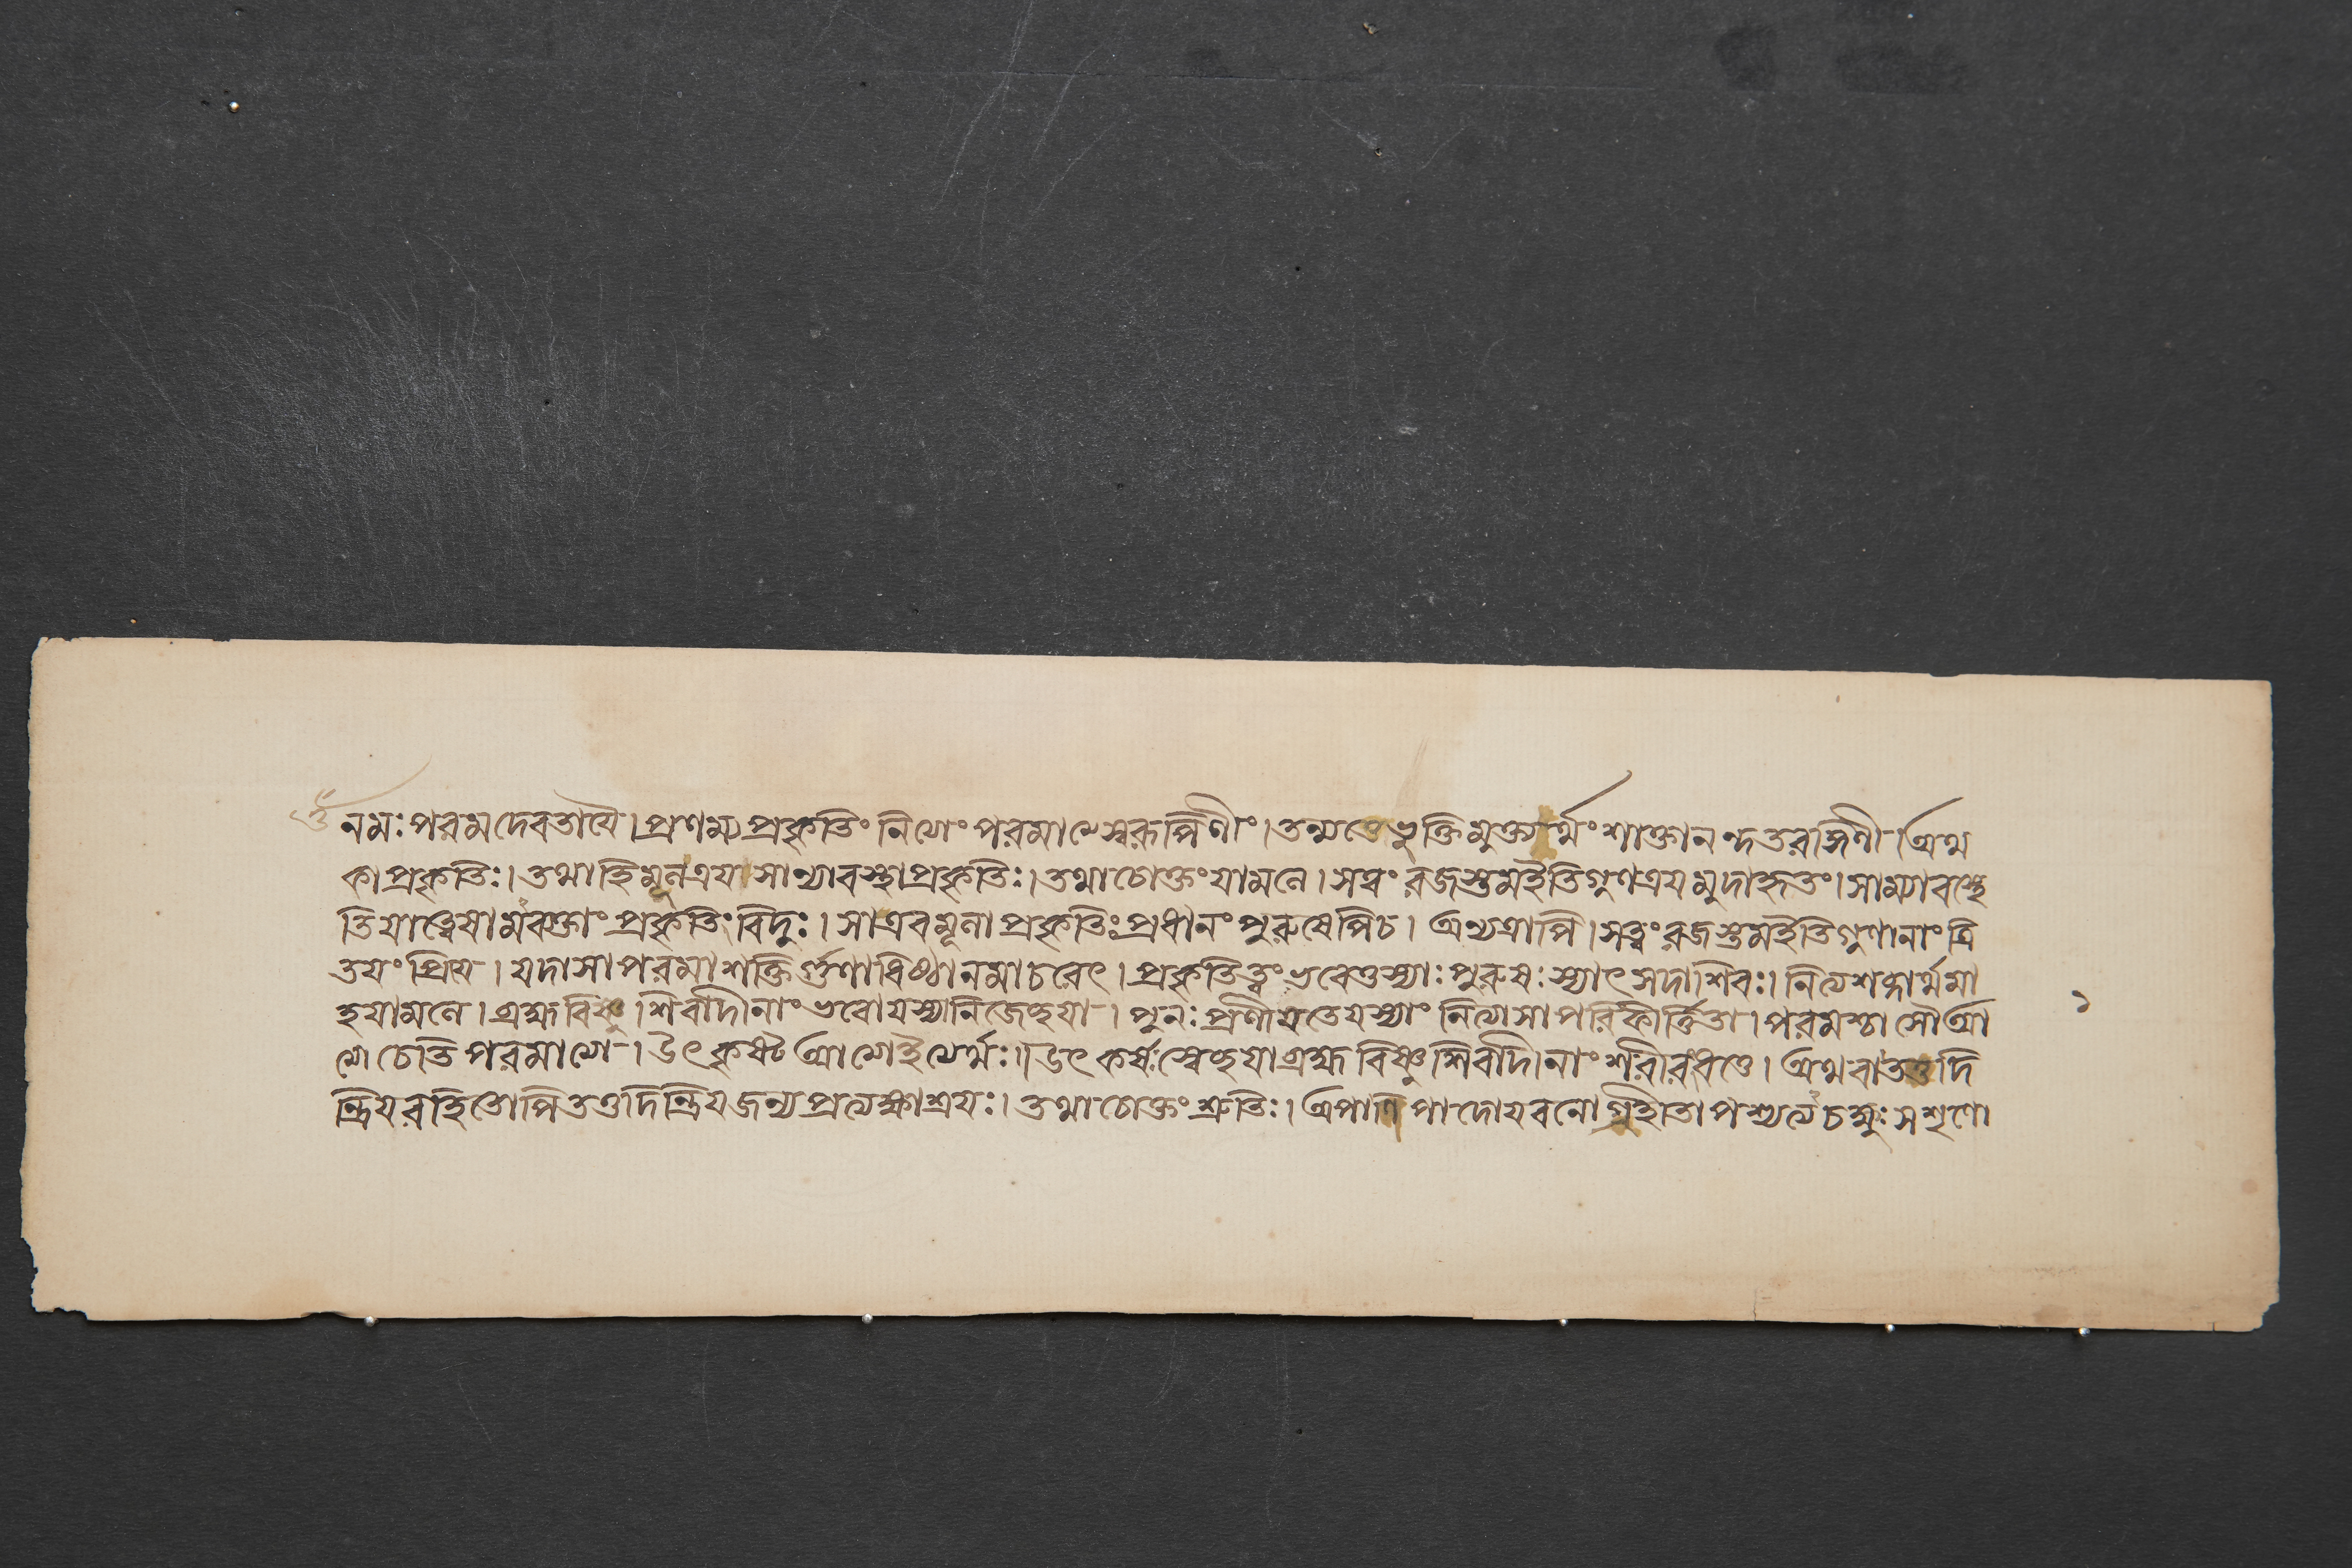 ওঁ নমঃ পরমদেবতায়ৈ।প্রণম্যপ্রকৃতিং নিত্যাং পরমাত্মস্বরূপিণীং।তন্মতেভুক্তিমুক্ত্যর্থং শাক্তানন্দতরঙ্গিণী।অথ
কা প্রকৃতিঃ।তথাহিমূলত্রয়সাম্যাবস্থাপ্রকৃতিঃ।তথাচোক্তং যামলে।সত্বং রজস্তমইতিগুণত্রয়মুদাহৃতং।সাম্যাবস্থে
তিযাত্বেষামবক্তাং প্রকৃতিং বিদুঃ।সাএবমূলা প্রকৃতিঃ প্রধানং পুরুষেপিচ। অন্যত্রাপি।সত্ত্বং রজস্তমইতিগুণানাং ত্রি
তয়ং প্রিয়ে। যদাসাপরমাশক্তির্গুণাধিষ্ঠানমাচরেৎ। প্রকৃতিত্বং ভবেত্তস্যাঃ পুরুষঃ স্যাৎ সদাশিবঃ। নিত্যশব্দার্থমা
হযামলে। ব্রহ্মবিষ্ণু।শিবাদীনাং ভবোযস্যানিজেচ্ছয়া। পুনঃ প্রলীয়তেযস্যাং নিত্যাসাপরিকীর্ত্তিতা। পরমশ্চাসৌআ
ত্মা চেতি পরমাত্মা। উৎকৃষ্ট আত্মেইত্যর্থঃ॥ উৎকর্ষঃ স্বেচ্ছয়াব্রহ্মবিষ্ণুশিবাদীনাং শরীরধত্তে। অথবাতত্তদি
ন্দ্রিয়রহিতোপিতত্তদিন্দ্রিয়জন্যপ্রত্যক্ষাশ্রয়ঃ। তথাচোক্তং শ্রুতিঃ। অপাণিপাদোযবনোগ্রহীতাপশ্যত্যচক্ষুঃ সশৃণো
১